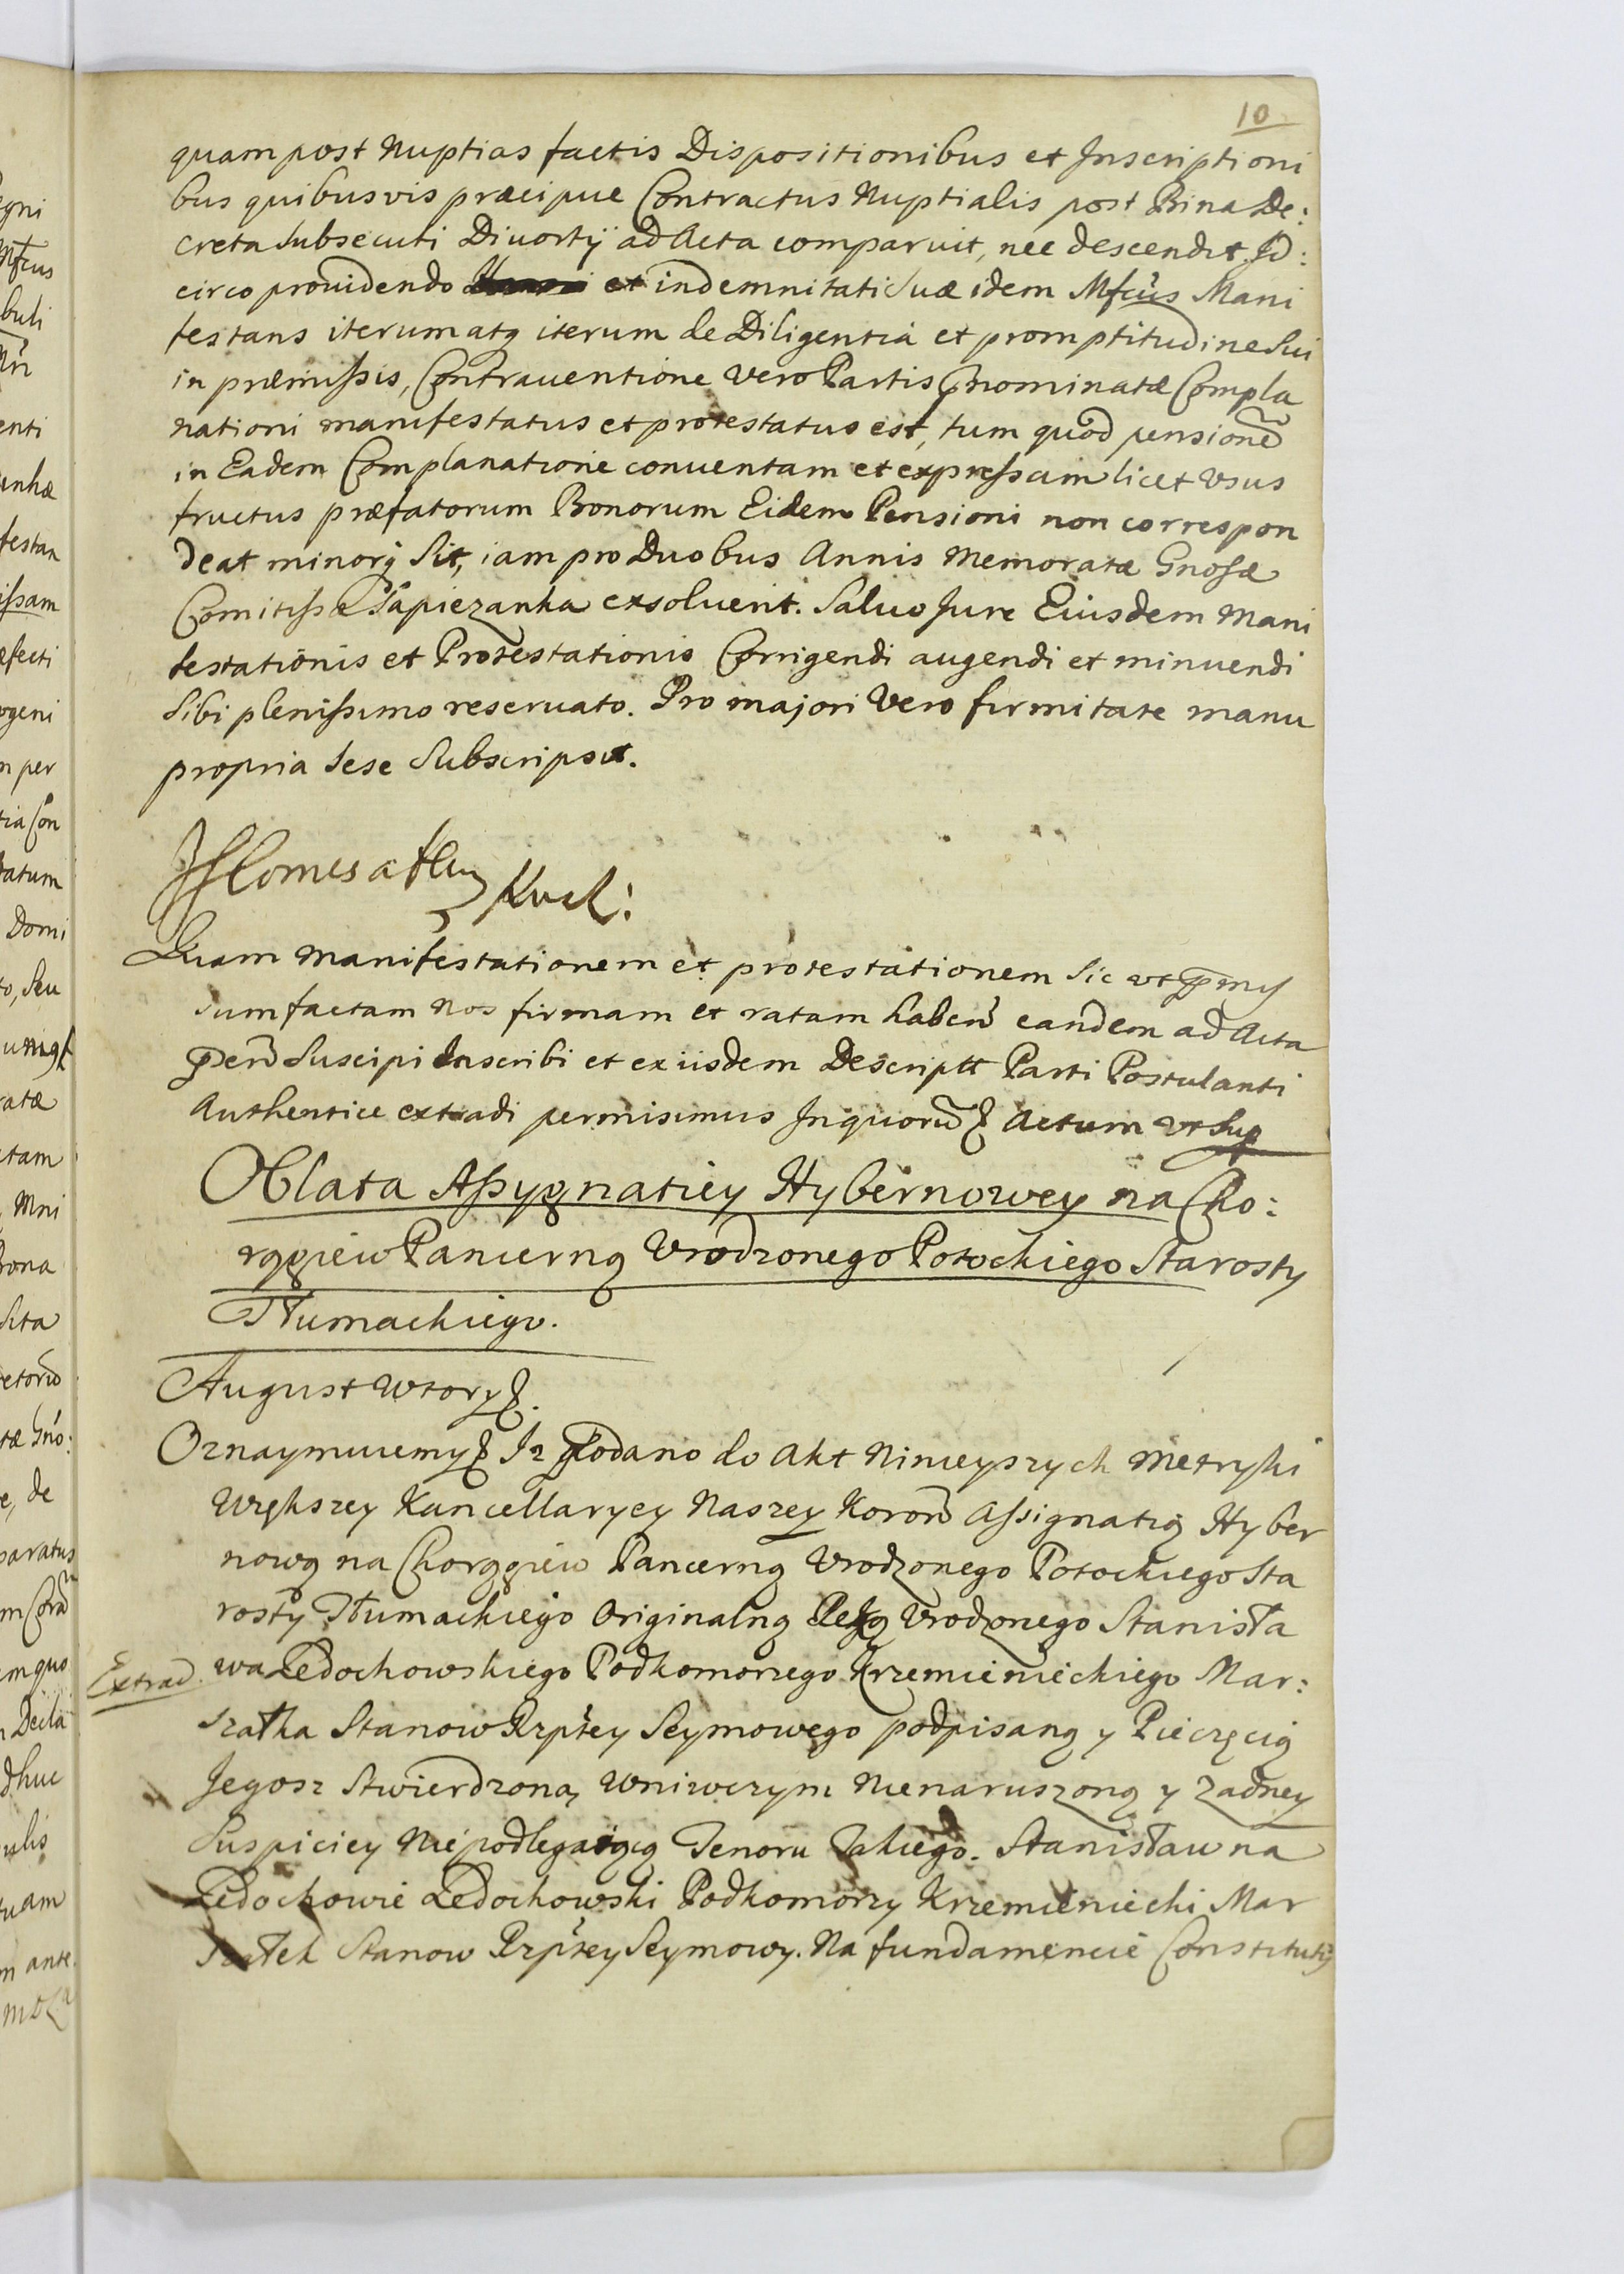 10
quam post Nuptias factis Dispositionibus et Inscriptioni
bus quibusvis præcipue Contractus Nuptialis post Bina De:
creta Subsecuti Divortÿ ad Acta comparuit, nec descendit. Id:
circo providendo et indemnitati Suæ idem Mfcus Mani
festans iterum atq iterum de Diligentia et promptitudine Sui
in præmissis, Contraventione vero Partis nominatæ Compla
nationi manifestatus et protestatus est, tum quod pensione
in Eadem Complanatione conventam et expressam licet Usus
fructus præfatorum Bonorum Eidem Pensioni non correspon
deat minorq Sit, iam pro Duobus Annis Memoratæ Gnosæ
Comitissæ Sapiezanka exsolverit. Salvo Jure Eiusdem Mani
festationis et Protestationis Corrigendi augendi et minuendi
Sibi plenissimo reservato. Pro majori Vero firmitate manu
propria Sese Subscripsit.
Comes a
Quam Manifestationem et protestationem Sic ut præmis
sum factam Nos firmam et ratam haben eandem ad Acta
præsen Suscipi Inscribi et ex iisdem Descriptt Parti Postulanti
Authentice extradi permisimus In quoru Actum ut Sup
Oblata Assygnatiey Hybernowey na Cho:
rągiew Pancerną Urodzonego Potockiego Starosty
Tłumackiego.
August Wtory
Oznaymuiemy Iz Podano do Akt Ninieyszych Metryki
Większey Kancellaryey Naszey Koron Assignatią Hyber
nową na Chorągiew Pancerną Urodzonego Potockiego Sta
rosty Tłumackiego Originalną Ręką Urodzonego Stanisła
Extrad. wa Ledochowskiego Podkomorzego Krzemienieckiego Mar:
szałka Stanow Rzptey Seymowego podpisaną y Pieczęcią
Jegosz Stwierdzoną, Wniwczym Nienaruszoną y Zadney
Suspiciey Niepodlegaiącą Tenoru Takiego. Stanisław na
Ledochowie Ledochowski Podkomorzy Krzemieniecki Mar
szałek Stanow Rzptey Seymowy. Na fundamencie Constitutÿ